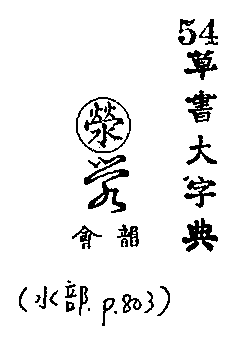 54
草書大字典
滎
韻會
(水部. p.803)